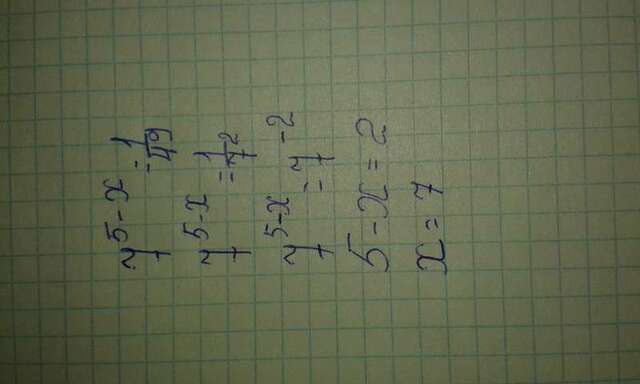 7^{5-x} = \frac{1}{49}
7^{5-x} = \frac{1}{7^2}
7^{5-x} = 7^{-2}
5-x=2
x=7